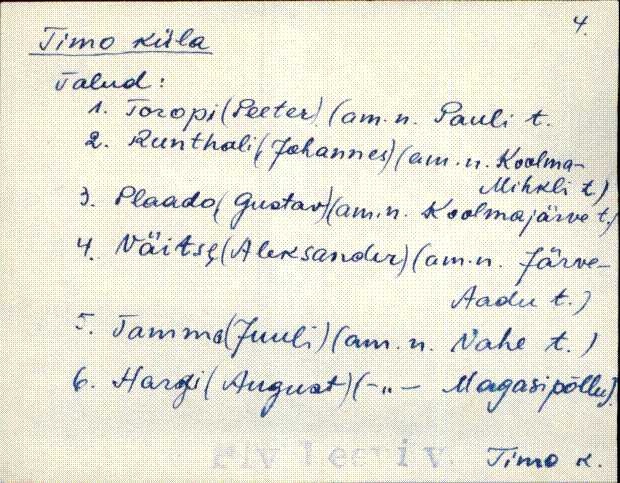 4.
Timo küla
Talud:
1. Toropi (Peeter) (am.n. Pauli t.
2. Runthali (Johannes) (am.n. Koolma-
Mihkli t.)
3. Plaado (Gustav) (am.n. Koolmajärve t.)
4. Väitse (Aleksander) (am.n. Järve-
Aadu t.)
5. Tamme (Juuli) (am.n. Vahe t.)
6. Hargi (August) (-„- Magasipõllu)
Timo k.